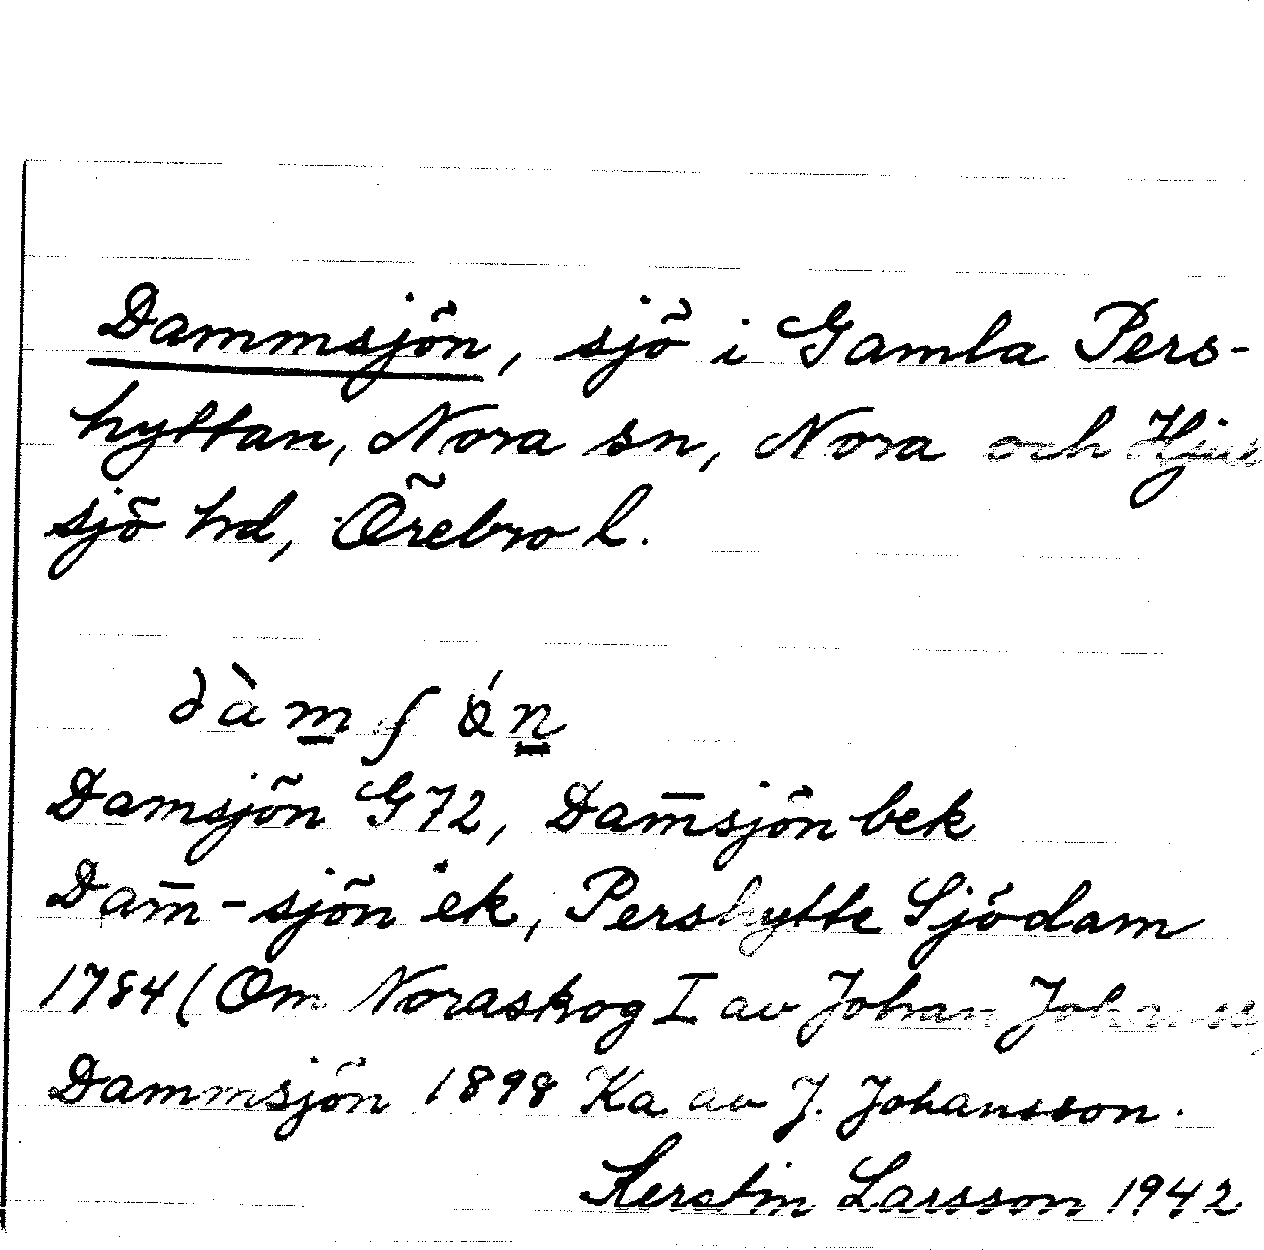 Dammsjön, sjö i Gamla Pers-
hyttan, Nora sn, Nora och Hjul
sjö hd, Örebro l.
dàmʃǿn
Damsjön G72, Dam̄sjön bek
Dam̄-sjön ek, Pershytte Sjödam
1784 (Om Noraskog I av Johan
Dammsjön 1898 Ka av J. Johansson.
Kerstin Larsson 1942